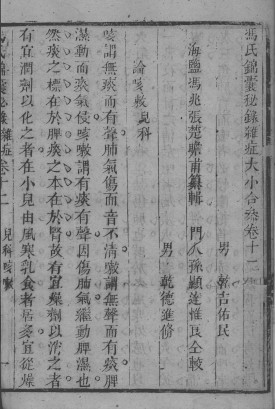 馮氏錦囊秘錄雜症大小合參卷十二
海鹽馮兆張楚瞻甫纂輯 門人孫顯達惟良全較
男 乾吉佑民
男 乾德進修
論咳嗽兒科
咳謂無痰而有聲肺氣傷而音不清嗽謂無聲而有痰脾
濕動而痰氣侵咳嗽謂有痰有聲因傷肺氣繼動脾濕也
然痰之標在於脾痰之本在於腎故有宜燥劑以滲之者
有宜潤劑以化之者在小兒由風寒乳食者居多宜從燥
兒科咳嗽